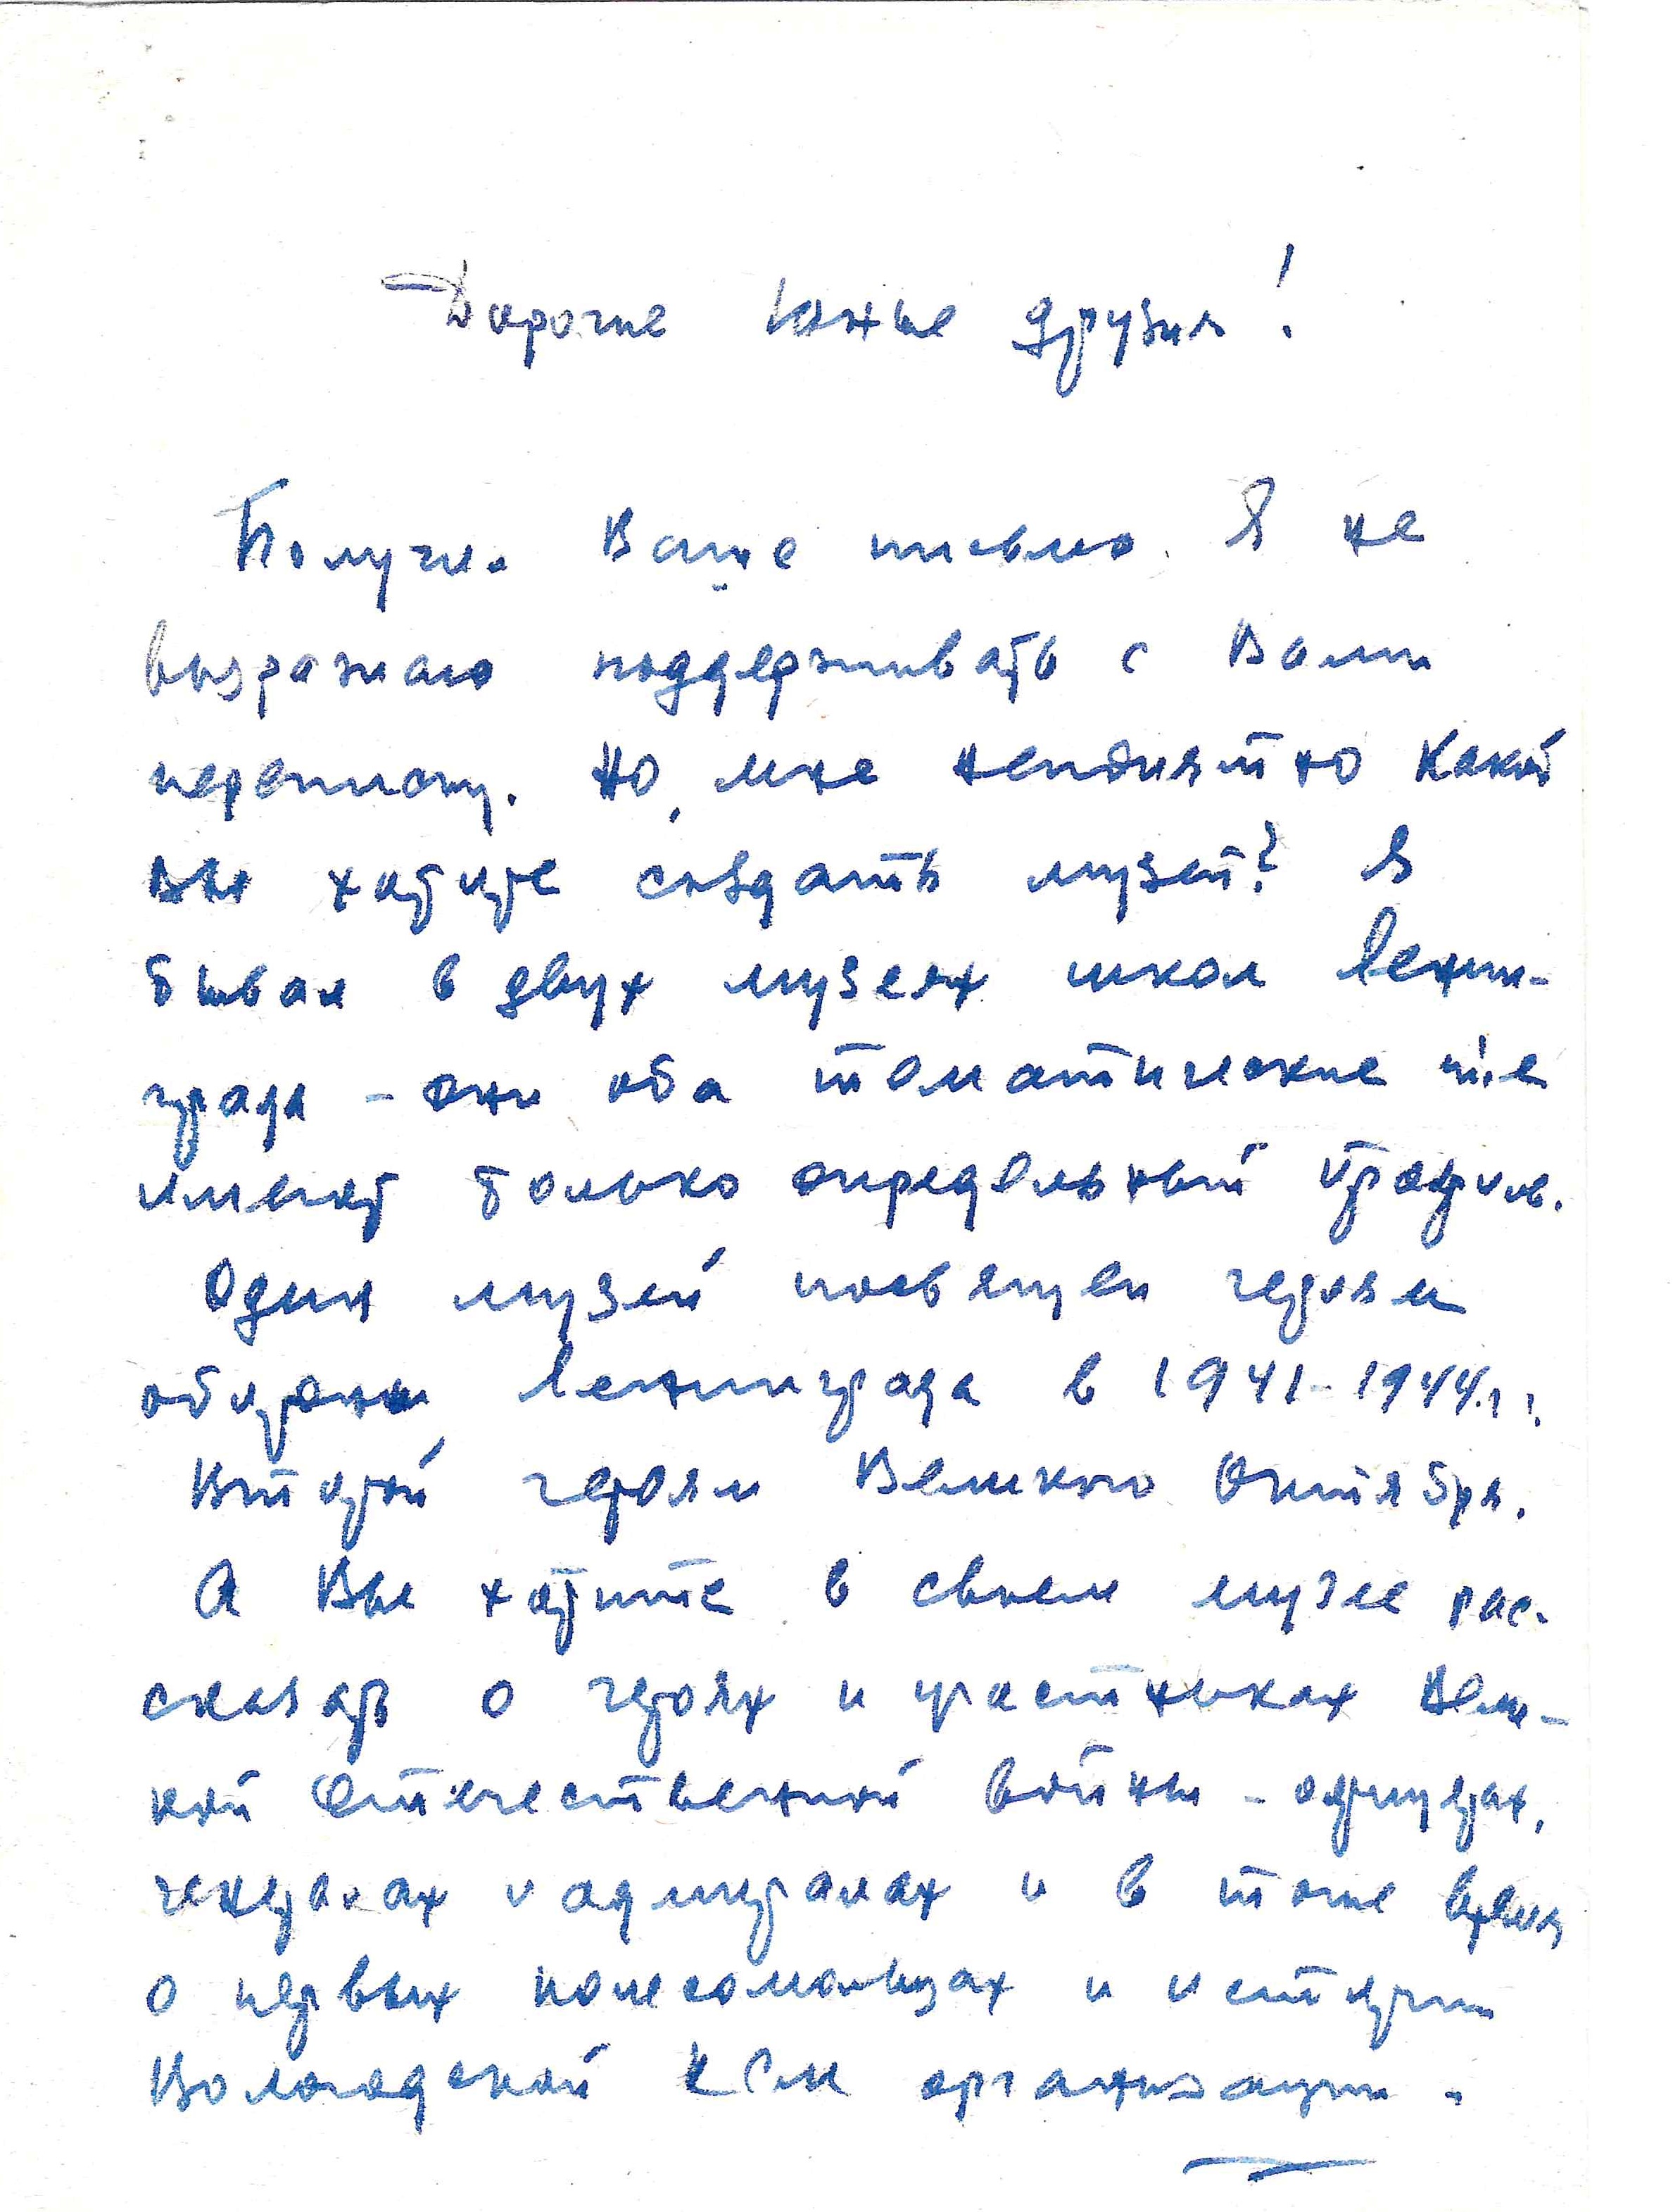 Дорогие юные друзья!
Получил Ваше письмо. Я не
возражаю поддерживать с Вами
переписку. Но, мне непонятно какой
Вы хотите создать музей? Я
бывал в двух музеях школ Ленин-
града - они оба тематические т.е
имеют только определьный профиль.
Один музей посвящен героям
обороны Ленинграда в 1941-1944 г.г.
Второй героям Великого Октября.
А Вы хотите в своем музее рас-
сказать о героях и участниках Вели-
кой Отечественной войны - офицерах,
генералах и адмиралах и в тоже время
о первых комсомольцах и истории
Вологодской КСМ организации.